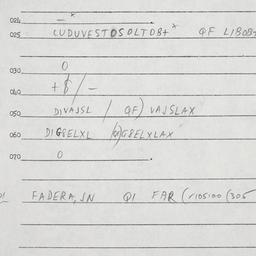 024 — *
025 CUDUVFSTDSOLTDB+* QF LIBOB+
030 0
040 +8/—
050 DIVAJSL / QF) VAJSLAX
060 DIGGELXL GGELXLAX
070 0
FADERA, JN QI FAR (V105100 (305